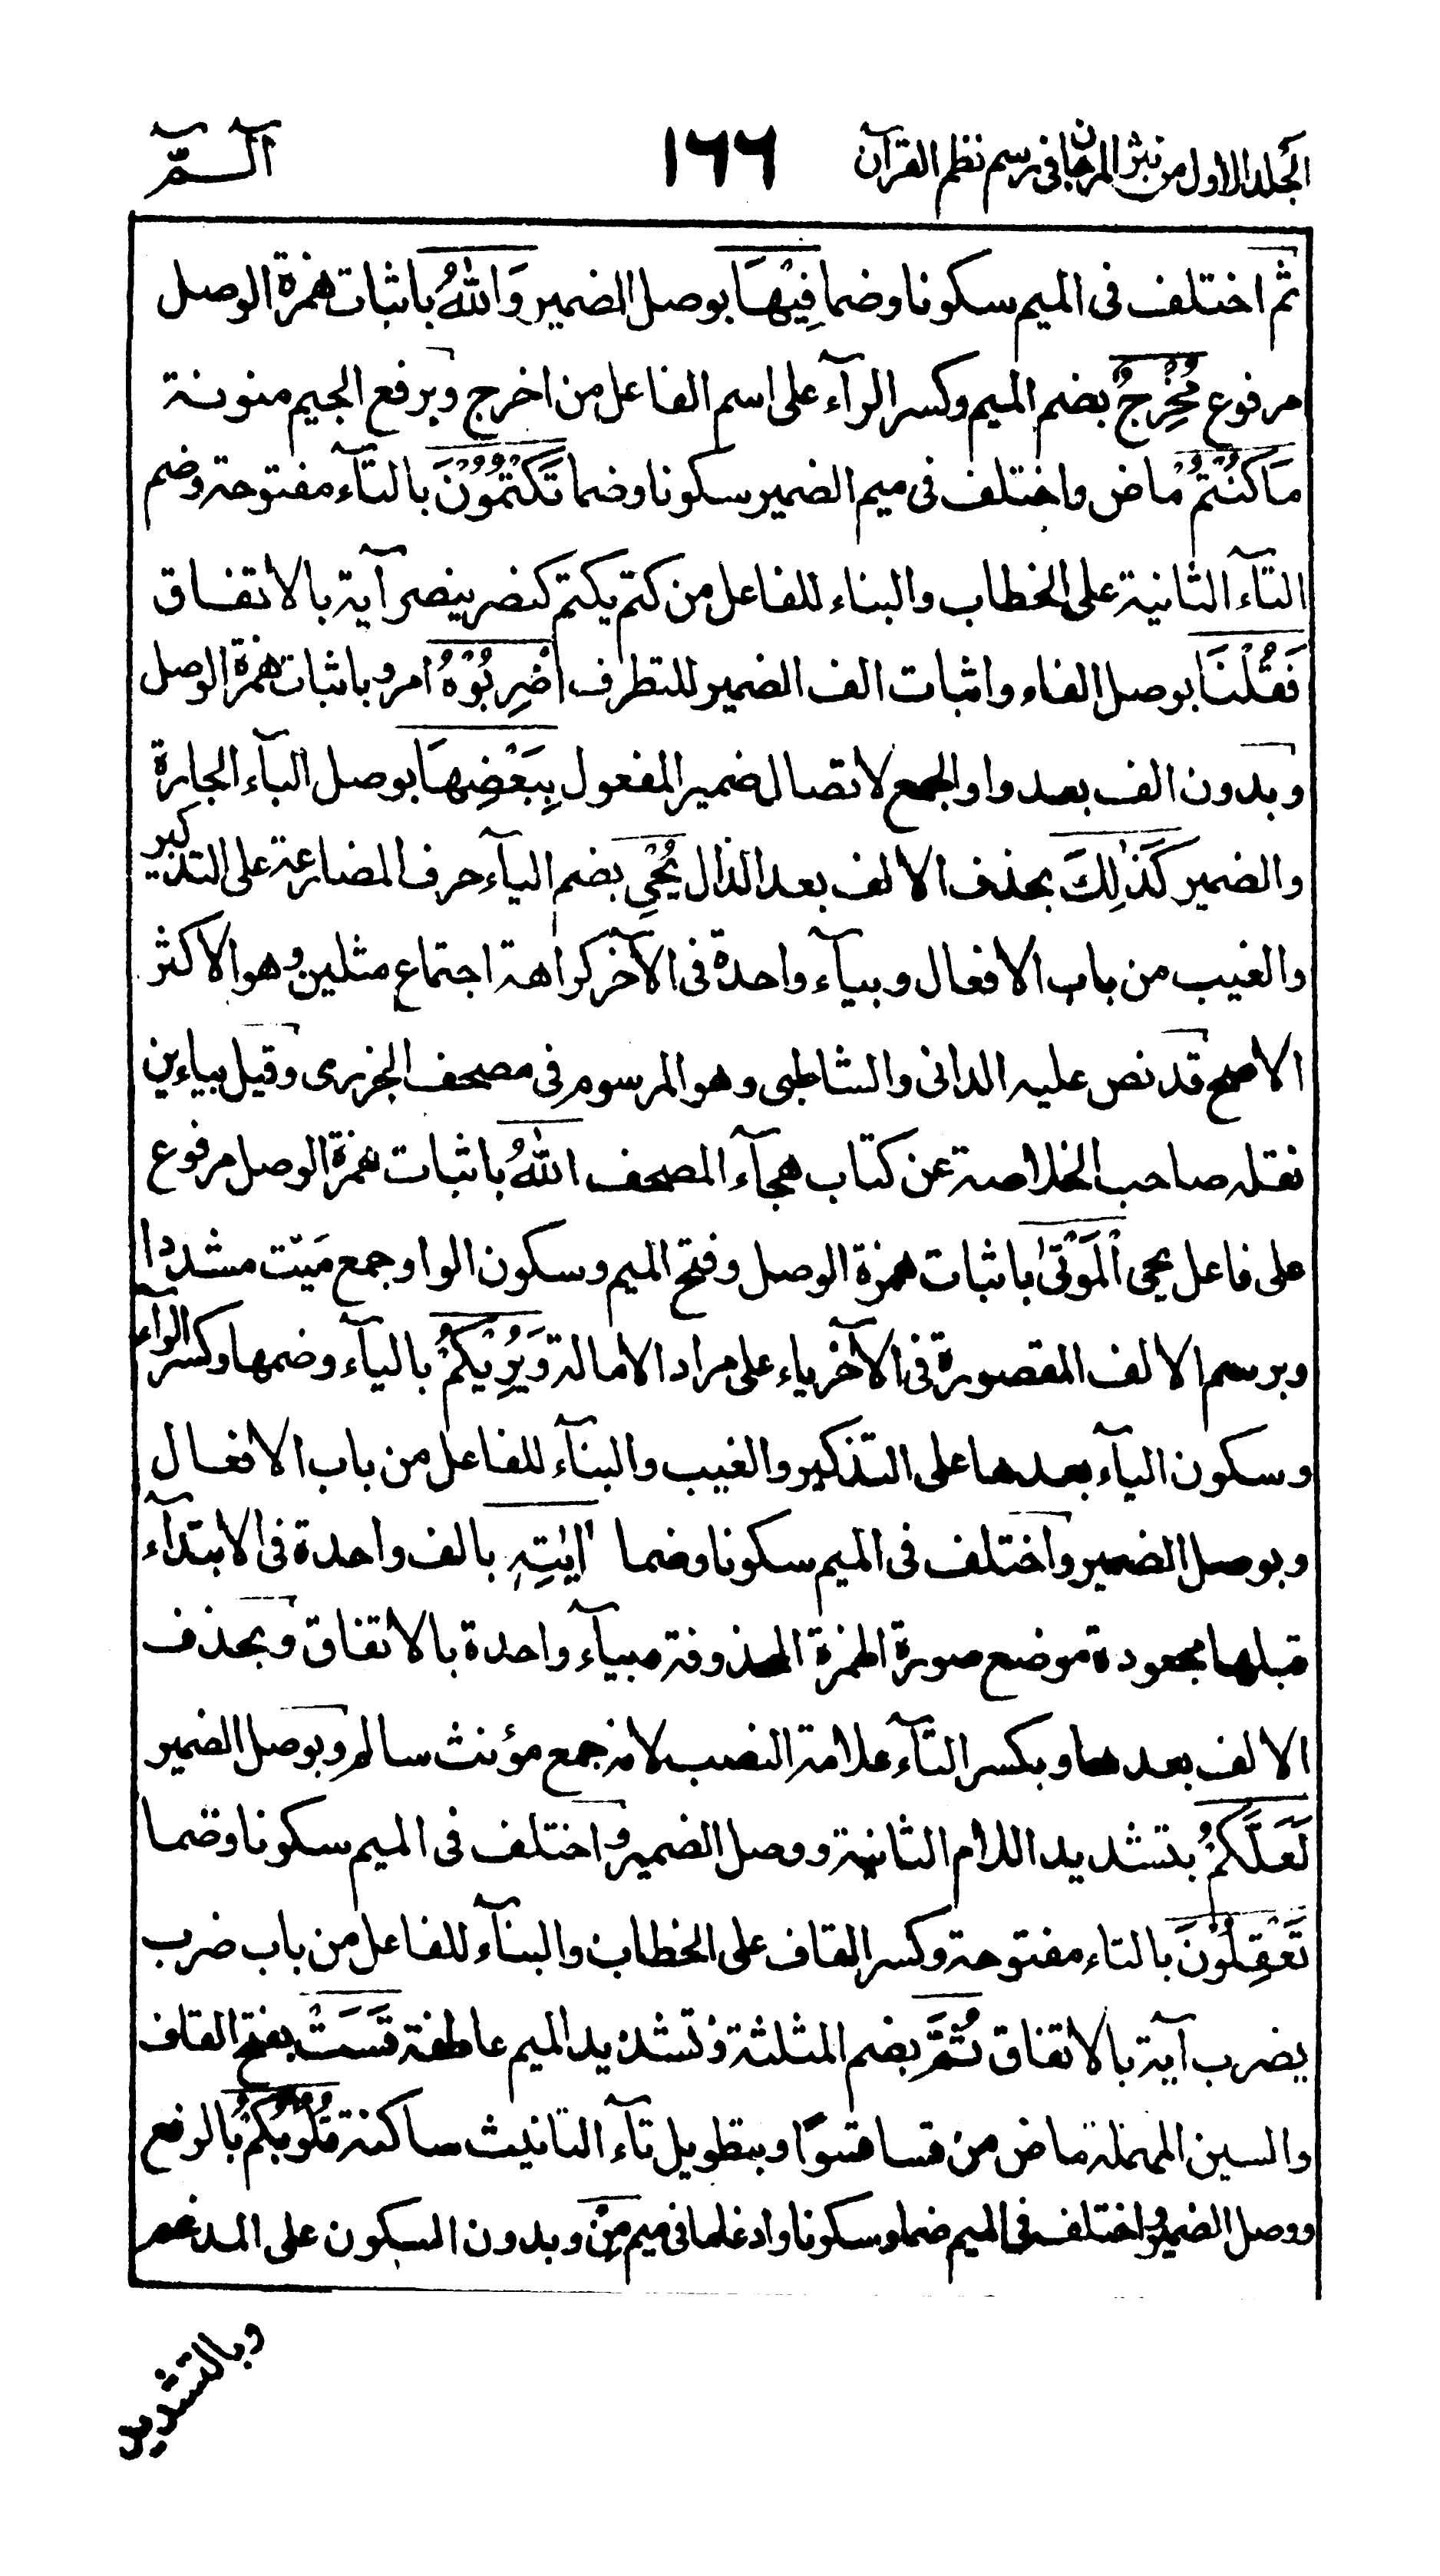 الجلد الاول من نثر المرجان فى رسم نظم القرآن ١٦٦ آلـمّ
ثم اختلف فى الميم سكونا وضما فِيْهَا بوصل الضمير وَاللّٰهُ باثبات همزة الوصل
مرفوع مُخْرِجٌ بضم الميم وكسر الرآء على اسم الفاعل من اخرج وبرفع الجيم منونة
مَاكُنْتُمْ ماض واختلف فى ميم الضمير سكونا وضما تَكْتُمُوْنَ بالتآء مفتوحة وضم
التآء الثانية على الخطاب والبناء للفاعل من كتم يكتم كنصر ينصر آية بالاتفاق
فَقُلْنَا بوصل الفاء واثبات الف الضمير للتطرف اضْرِبُوْهُ امر وباثبات همزة الوصل
وبدون الف بعد واو الجمع لاتصال ضمير المفعول بِبَعْضِهَا بوصل البآء الجارة
والضمير كَذٰلِكَ بحذف الالف بعد الذال يُحْيِ بضم اليآء حرف المضارعة على التذكير
والغيب من باب الافعال وبيآء واحدة فى الآخر كراهة اجتماع مثلين وهو الاكثر
الاصح قد نص عليه الدانى والشاطبى وهو المرسوم فى مصحف الجزرى وقيل بياءين
نقله صاحب الخلاصة عن كتاب هجآء المصحف اللّٰهُ باثبات همزة الوصل مرفوع
على فاعل يحى الْمَوْتٰى باثبات همزة الوصل وفتح الميم وسكون الواو جمع مَيّت مشددا
وبرسم الالف المقصورة فى الآخر ياء على مراد الامالة وَيُرِيْكُمْ بالياۤء وضمها وكسر الرآء
وسكون اليآء بعدها على التذكير والغيب والبنآء للفاعل من باب الافعال
وبوصل الضمير واختلف فى الميم سكونا وضما اٰيٰتِهٖ بالف واحدة فى الابتدآء
قبلها مجعودة موضع صورة الهمزة المحذوفة مبيآء واحدة بالاتفاق وبحذف
الالف بعدها وبكسر التآء علامة النصب لانه جمع مؤنث سالم وبوصل الضمير
لَعَلَّكُمْ بتشديد اللام الثانية ووصل الضمير واختلف فى الميم سكونا وضما
تَعْقِلُوْنَ بالتاء مفتوحة وكسر القاف على الخطاب والبنآء للفاعل من باب ضرب
يضرب آية بالاتفاق ثُمَّ بضم المثلثة وتشديد الميم عاطفة قَسَتْ بفتح القاف
والسين المهملة ماض من قسا قسوا وبتطويل تآء التانيث ساكنة قُلُوْبُكُمْ بالرفع
ووصل الضمير واختلف فى الميم ضما وسكونا وادغامها فى ميم مِنْ وبدون السكون على المدغم
وبالتشديد